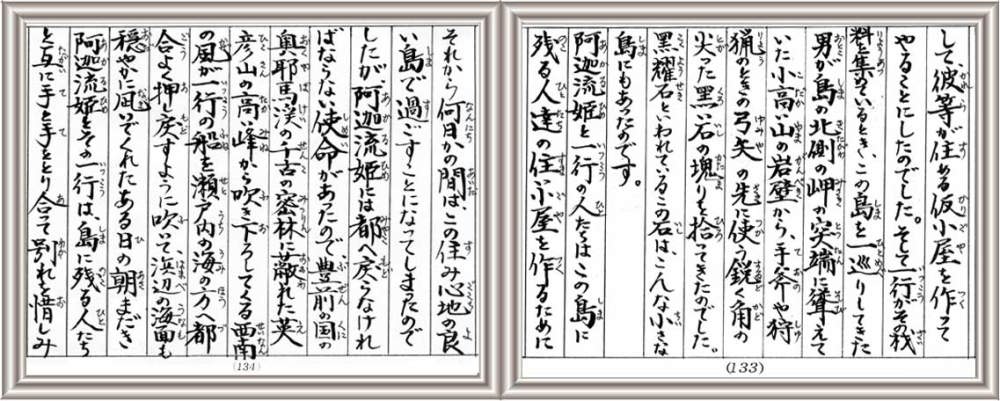 して、彼等が住める仮小屋を作って
やることにしたのでした。そして一行がその材
料を集めているとき、この島を一巡りしてきた
男が島の北側の岬の突端に聳えて
いた小高い山の岩壁から、手斧や狩
猟のときの弓矢の先に使う鋭い角の
尖った黒い石の塊りを拾ってきたのでした。
黒耀石といわれているこの石は、こんな小さな
島にもあったのです。
阿迦流姫と一行の人たちはこの島に
残る人達の住む小屋を作るために
(133)
それから何日かの間は、この住み心地の良
い島で過ごすことになってしまったので
したが、阿迦流姫には都へ戻らなけれ
ばならない使命があったので、豊前の国の
奥耶馬渓の千古の密林に蔽れた英
彦山の高い峰から吹き下ろしてくる西南
の風が一行の船を瀬戸内の海の方へ都
合よく押し戻すように吹いて浜辺の海面も
穏やかに凪いでくれたある日の朝まだき
阿迦流姫とその一行は、島に残る人たち
と互に手と手をとり合って別れを惜しみ
(134)